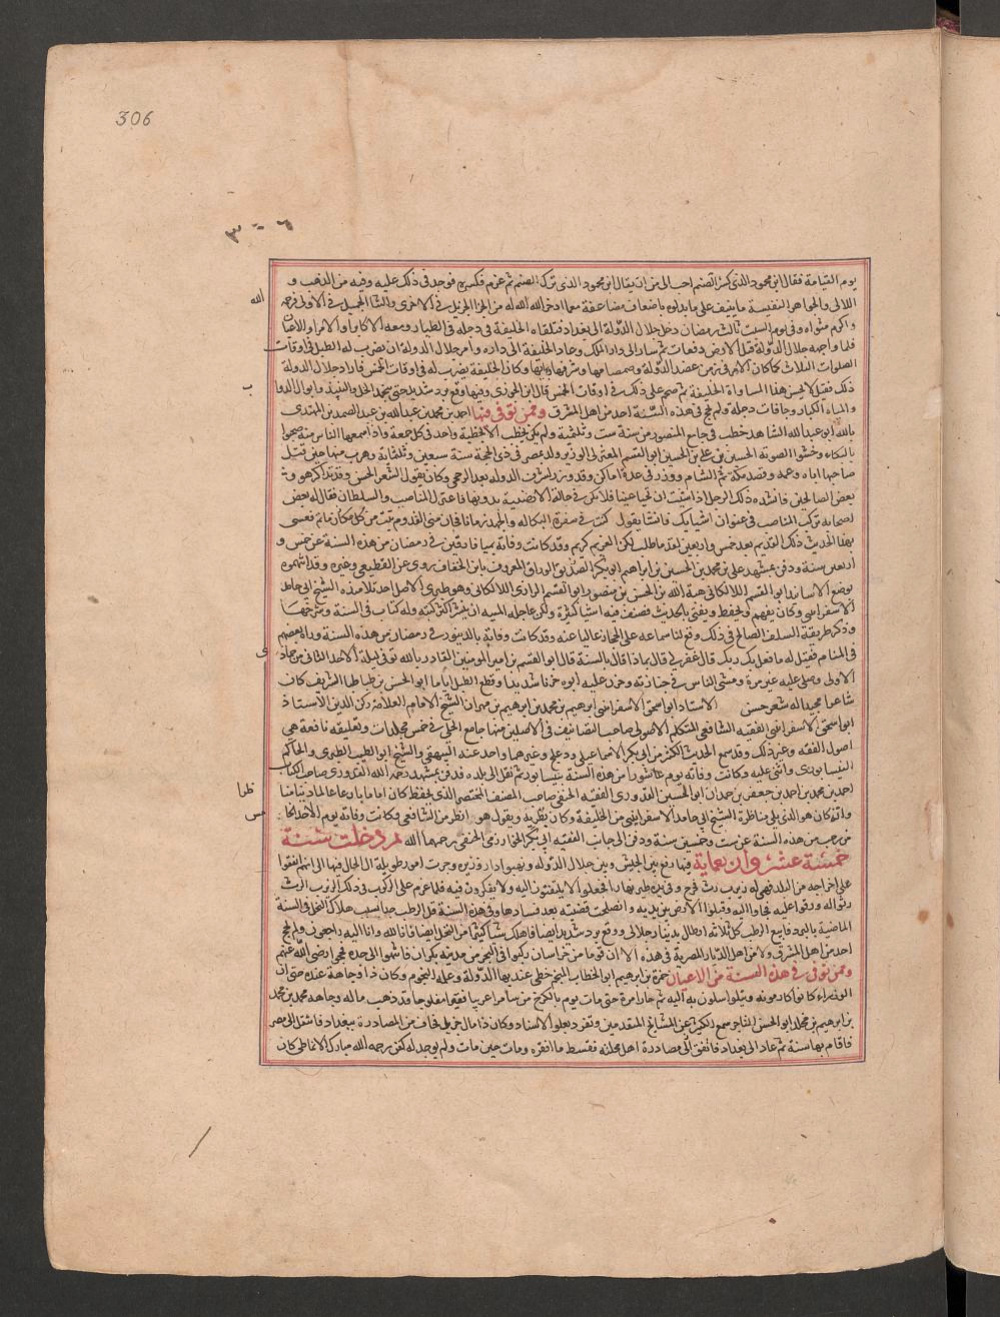 306
٣٠٦
يوم القيامة فقال ابن محمود الذى كسر الصنم احب الى من ان يقال ابن محمود الذى ترك الصنم ثم عزم فكسره فوجد فى ذلك عليه وفيه من الذهب و
اللالى والجواهر النفيسة ما ينيف على ما بذلوه باضعاف مضاعفة مما ادخر الله له من الجزا الجزيل فى الاخرى والثنا الجميل فى الاولى فرحمه
الله
واكرم مثواه وفى يوم السبت ثالث رمضان دخل جلال الدولة الى بغداد فتلقاه الخليفة فى دجلة فى الطيار ومعه الاكابر والامرا والاعيان
فلما واجهه جلال الدولة قبل الارض دفعات ثم سار الى دار الملك وعاد الخليفة الى داره وامر جلال الدولة ان يضرب له الطبل فى اوقات
الصلوات الثلاث كما كان الامر فى زمن عضد الدولة وصمصامها وشرفها وبهائها وكان الخليفة يضرب له فى اوقات الخمس فاراد جلال الدولة
ذلك فقيل لا يحسن هذا المساواة الخليفة ثم صمم على ذلك فى اوقات الخمس قال ابن الجوزى وفيها وقع برد شديد حتى جمد الخل والنبيذ وابوال الدوا
ب
والمياه الكبار وحافات دجلة ولم يحج فى هذه السنة احد من اهل المشرق وممن توفى فيها احمد بن محمد بن عبد الله بن عبد الصمد بن المهتدى
بالله ابو عبد الله الشاهد خطب فى جامع المنصور من سنة ست وثلثمية ولم يكن يخطب الا بخطبة واحد فى كل جمعة واذا سمعها الناس منه ضجوا
بالبكاء وخشوا الصوته الحسين بن على بن الحسين ابو القسم المغربى الوزير ولد بمصر فى ذى الحجة سنة سبعين وثلثماية وهرب منها حين قتل
صاحبها اباه وعمه وقصد مكة ثم الشام ووزر فى عدة اماكن وقد وزر لشرف الدولة بعد الرخجى وكان يقول الشعر الحسن وقد تذاكر هو و
بعض الصالحين فانشده ذلك الرجل اذا شيت ان تحيا عينا فلا تكن على حالة الا رضيت بدونها فاعتزل المناصب والسلطان فقال له بعض
اصحابه تركت المناصب فى عنوان اشبابك فانشا يقول كنت فى سفرة البطالة والجهد زمانا فان منى القدوم تبت من كل ماثم فعسى
بهذا الحديث ذلك القديم بعد خمس واربعين لقد ماطلت لكن الغريم كريم وقد كانت وفاته بميافارقين فى رمضان من هذه السنة عن خمس و
اربعين سنة ودفن بمشهد على بن محمد بن الحسين بن ابراهيم ابو بكر الصيدلى الوراق المعروف بابن الخفاف روى عن القطيعى وغيره وقد اتهموه
بوضع الاساند ابو القسم اللالكائى هبة الله بن الحسن بن منصور ابو القسم الرازى اللالكائى وهو طبرى الاصل احد تلامذة الشيخ ابى حامد
الاسفراينى وكان يفهم ويحفظ ويفتى بالحديث فصنف فيه اشيا كثيرة ولكن عاجله المنية ان ينتشر اكثر كتبه وله كتاب فى السنة وشرحها
وذكر طريقة السلف الصالح فى ذلك وقع لنا سماعه على الحجاز عاليا عنه وقد كانت وفاته بالدينور فى رمضان من هذه السنة وراه بعضهم
فى
فى المنام فقيل له ما فعل بك ربك قال غفر لى قال بماذا قال بالسنة قال ابو القسم بن امير المومنين القادر بالله توفى ليلة الاحد الثانى من جماد
الاولى وصلى عليه غير مرة ومشى الناس فى جنازته وحزن عليه ابوه حزنا شديدا وقطع الطبل اياما ابو الحسن بن طباطبا الشريف كان
شاعرا مجيدا له شعر حسن الاستاد ابو اسحق الاسفراينى ابرهيم بن محمد بن ابرهيم بن مهران الشيخ الامام العلامة ركن الدين الاستاذ
ابو اسحق الاسفراينى الفقيه الشافعى المتكلم الاصولى صاحب التصانيف فى الاصلين منها جامع الحلى فى خمس مجلدات وتعليقه نافعة فى
اصول الفقه وغير ذلك وقد سمع الحديث الكثير من ابى بكر الاسماعيلى ودعلج وغيرهما واخذ عنه البيهقى والشيخ ابو الطيب الطبرى والحاكم
النيسابورى واثنى عليه وكانت وفاته يوم عاشورا من هذه السنة بنيسابور ثم نقل الى بلده فدفن بمشهد رحمه الله القدورى صاحب الكتاب
احمد بن محمد بن احمد بن جعفر بن حمدان ابو الحسين القدورى الفقيه الحنفى صاحب المصنف المختصر الذى يحفظ كان اماما بارعا عالما دينا منا
ظرا
وانه كان هو الذى يلى مناظرة الشيخ ابى حامد الاسفراينى من الحنفية وكان يطريه ويقول هو انظر من الشافعى وكانت وفاته يوم الاحد الخا
مس
من رجب من هذه السنة عن ست وخمسين سنة ودفن الى جانب الفقيه ابى بكر الخوارزمى الحنفى رحمهما الله ثم دخلت سنة
خمسة عشر واربعماية فيها وقع بين الجيش وبين جلال الدولة ونهبوا دار وزيره وجرت امور طويلة ال الحال فيها الى انهم اتفقوا
على اخراجه من البلد
الماضية بالبرد فابيع الرطب كل ثلاثة ارطال بدينار جلالى ووقع برد شديد ايضا فاهلك شيا كثيرا من النخل ايضا فانا لله وانا اليه راجعون ولم يحج
احد من اهل المشرق ولا من اهل الديار المصرية فى هذه الا ان قوما من خراسان ركبوا فى البحر من مدينة مكران فانتهوا الى جدة فحجوا رضى الله عنهم
وممن توفى فى هذه السنة من الاعيان حمزة بن ابرهيم ابو الخطاب المنجم حظى عند بها الدولة وعلمه النجوم وكان ذا وجاهة عنده حتى ان
الوزراء كانوا يخافونه ويتوسلون به اليه ثم صار امره حتى مات يوم بالكرخ من سامرا غريبا فقيرا مفلوجا قد ذهب ماله وجاهه محمد بن محمد
بن ابرهيم بن مخلد ابو الحسن التاجر سمع الكثير عن المشايخ المتقدمين وتفرد بعلو الاسناد وكان ذا مال جزيل فخاف من المصادرة ببغداد فانتقل الى مصر
فاقام بها سنة ثم عاد الى بغداد فاتفق الى مصادرة اهل محلته فقسط ما افقره ومات حين مات ولم يوجد له كفن رحمه الله مبارك الانماطى كان